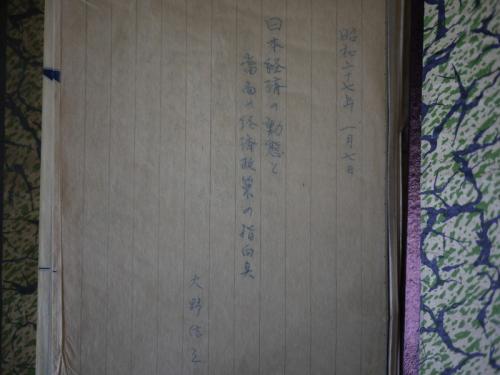 昭和二十七年 一月七日
日本経済の動態と
当面の経済政策の指向点
大野信三